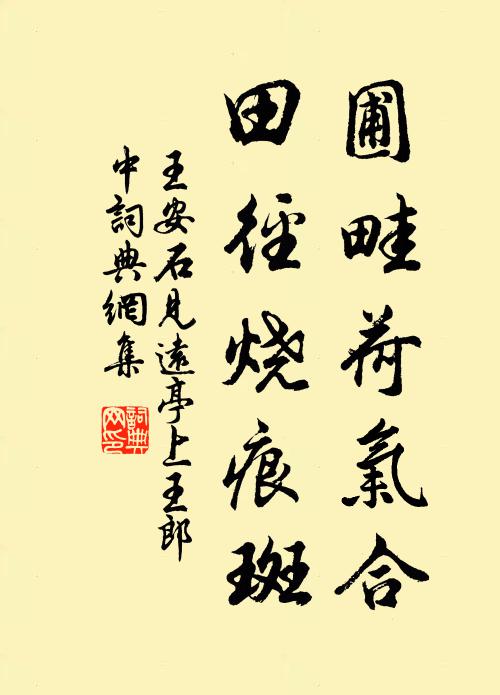 圃畦荷氣合
田徑烧痕斑
王安石見遠亭上王郎
中詞典網集
詞典
网印